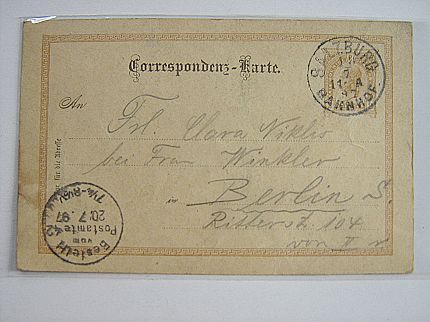 Correspondenz-Karte.
An
Frl. Clara Niklis
bei Frau Winkler
in Berlin S.
Ritterstr. 104
von
SALZBURG
7
11-A
97
BAHNHOF
Bestellt
vom
Postamte 42
20.7.97
für die Adresse